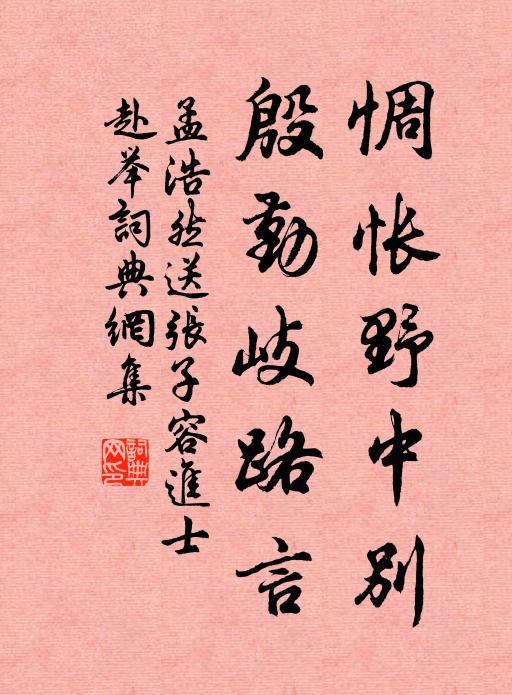 惆悵野中別
殷勤歧路言
孟浩然送張子容進士
赴举詞典網集
詞典网印